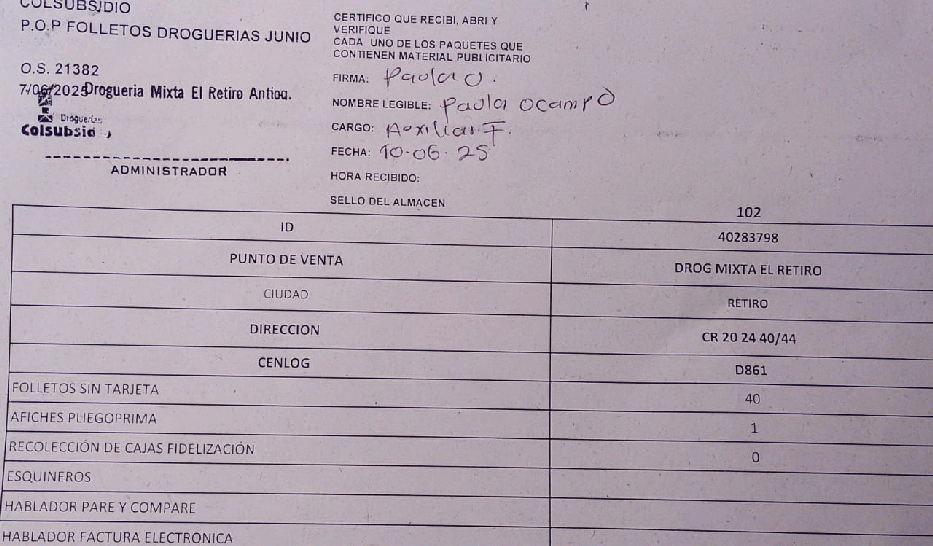 COLSUBSIDIO
P.O.P FOLLETOS DROGUERIAS JUNIO
O.S. 21382
7/06/2025 Drogueria Mixta El Retiro Antioq.
Droguerías
Colsubsidio
ADMINISTRADOR
CERTIFICO QUE RECIBI, ABRI Y
VERIFIQUE
CADA UNO DE LOS PAQUETES QUE
CONTIENEN MATERIAL PUBLICITARIO
FIRMA: Paola O.
NOMBRE LEGIBLE: Paola Ocampo
CARGO: Auxiliar F.
FECHA: 10-06-25
HORA RECIBIDO:
SELLO DEL ALMACEN
102
ID 40283798
PUNTO DE VENTA DROG MIXTA EL RETIRO
CIUDAD RETIRO
DIRECCION CR 20 24 40/44
CENLOG D861
FOLLETOS SIN TARJETA 40
AFICHES PLIEGOPRIMA 1
RECOLECCIÓN DE CAJAS FIDELIZACIÓN 0
ESQUINEROS
HABLADOR PARE Y COMPARE
HABLADOR FACTURA ELECTRONICA